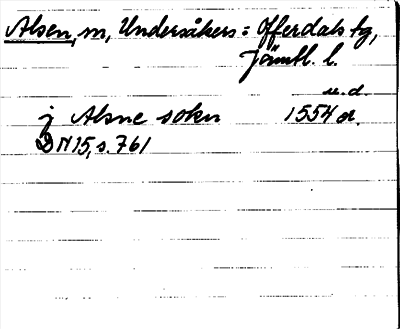 Alsen, m, Undersåkers = Offerdals tg,
Jämtl. l.
u.d.
j Alsne sokn 1554 A.
DN 15, s. 761